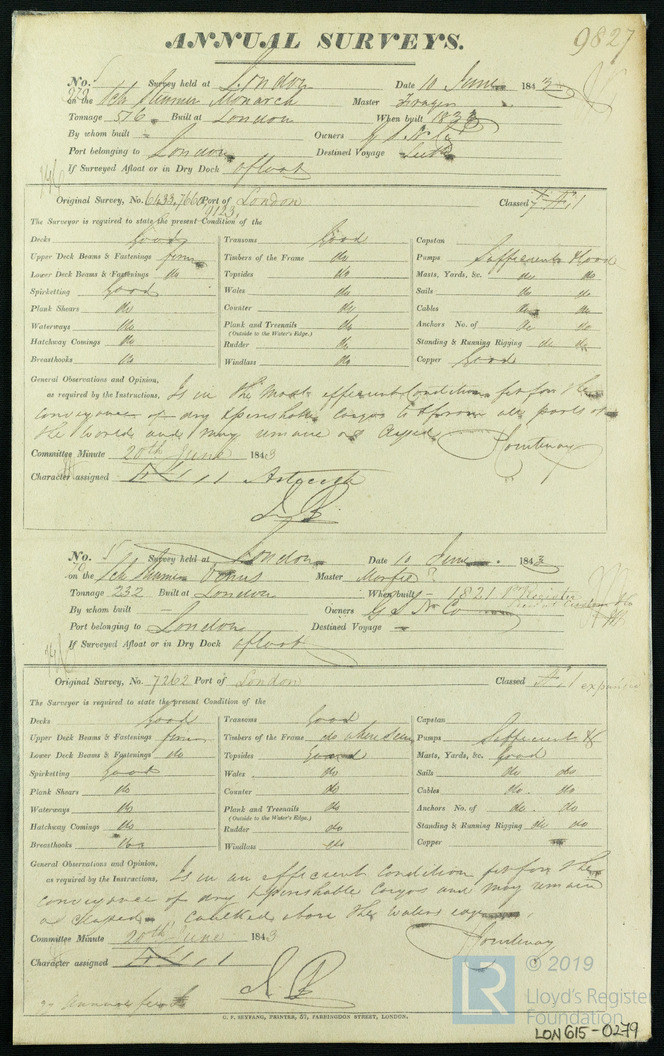 ANNUAL SURVEYS.
9827
No. Survey held at London Date 10 June 1843
on the Monarch Master
Tonnage 516 Built at London When built 1833
By whom built - Owners G S N Co
Port belonging to London Destined Voyage Leith
If Surveyed Afloat or in Dry Dock afloat
Original Survey, No. 6433, 7660, Port of London Classed
9123,
The Surveyor is required to state the present Condition of the
Decks Good Transoms Good Capstan
Upper Deck Beams & Fastenings firm Timbers of the Frame do Pumps Sufficient & Good
Lower Deck Beams & Fastenings do Topsides do Masts, Yards, &c. do do
Spirketting Good Wales do Sails do do
Plank Shears do Counter do Cables do do
Waterways do Plank and Treenails do Anchors No. of do do
(Outside to the Water's Edge.)
Hatchway Comings do Rudder do Standing & Running Rigging do do
Breasthooks do Windlass do Copper Good
General Observations and Opinion, Is in the most efficient Condition fit for the
as required by the Instructions. conveyance of dry & perishable cargos to & from all parts of
the World and may remain as Classed
Courtenay
Committee Minute 20th June 1843
Character assigned
No. Survey held at London Date 10 June 1843
70
on the Venus Master
Tonnage 232 Built at London When built - 1821
By whom built - Owners G S N Co
Port belonging to London Destined Voyage -
If Surveyed Afloat or in Dry Dock afloat
Original Survey, No. 7262 Port of London Classed
The Surveyor is required to state the present Condition of the
Decks Good Transoms Good Capstan
Upper Deck Beams & Fastenings firm Timbers of the Frame do where seen Pumps Sufficient &
Lower Deck Beams & Fastenings do Topsides Good Masts, Yards, &c. Good
Spirketting Good Wales do Sails do do
Plank Shears do Counter do Cables do do
Waterways do Plank and Treenails do Anchors No. of do do
(Outside to the Water's Edge.)
Hatchway Comings do Rudder do Standing & Running Rigging do do
Breasthooks do Windlass do Copper
General Observations and Opinion, Is in an efficient condition fit for the
as required by the Instructions. conveyance of dry & perishable cargos and may remain
as Classed. Caulked above the waters edge
Courtenay
Committee Minute 20th June 1843
Character assigned
C. F. SEYFANG, PRINTER, 57, FARRINGDON STREET, LONDON.
LR © 2019
Lloyd's Register
Foundation
LON615-0279